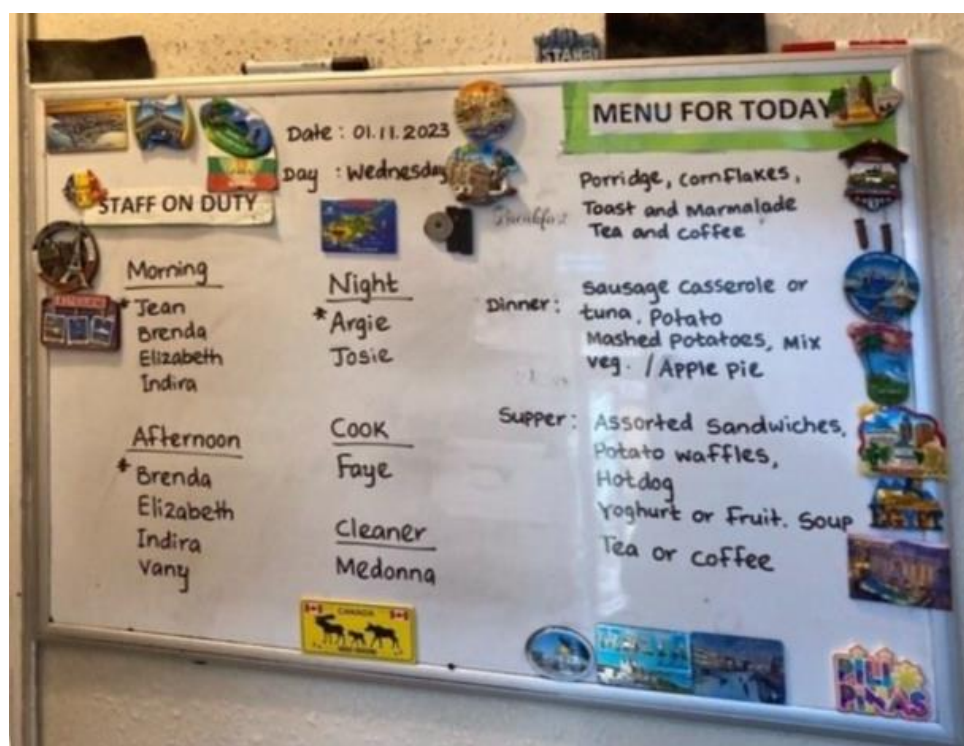 ISTANBUL
Date : 01.11.2023
Day : Wednesday
STAFF ON DUTY
Morning
* Jean
Brenda
Elizabeth
Indira
Afternoon
* Brenda
Elizabeth
Indira
Vany
Night
* Argie
Josie
Cook
Faye
Cleaner
Medonna
MENU FOR TODAY
Breakfast
Porridge, cornflakes,
Toast and Marmalade
Tea and coffee
Dinner : Sausage Casserole or
tuna. Potato
Mashed Potatoes, Mix
veg. / Apple pie
Supper : Assorted Sandwiches,
Potato waffles,
Hotdog
Yoghurt or Fruit. Soup
Tea or coffee
EGYPT
CANADA
PILI
PINAS